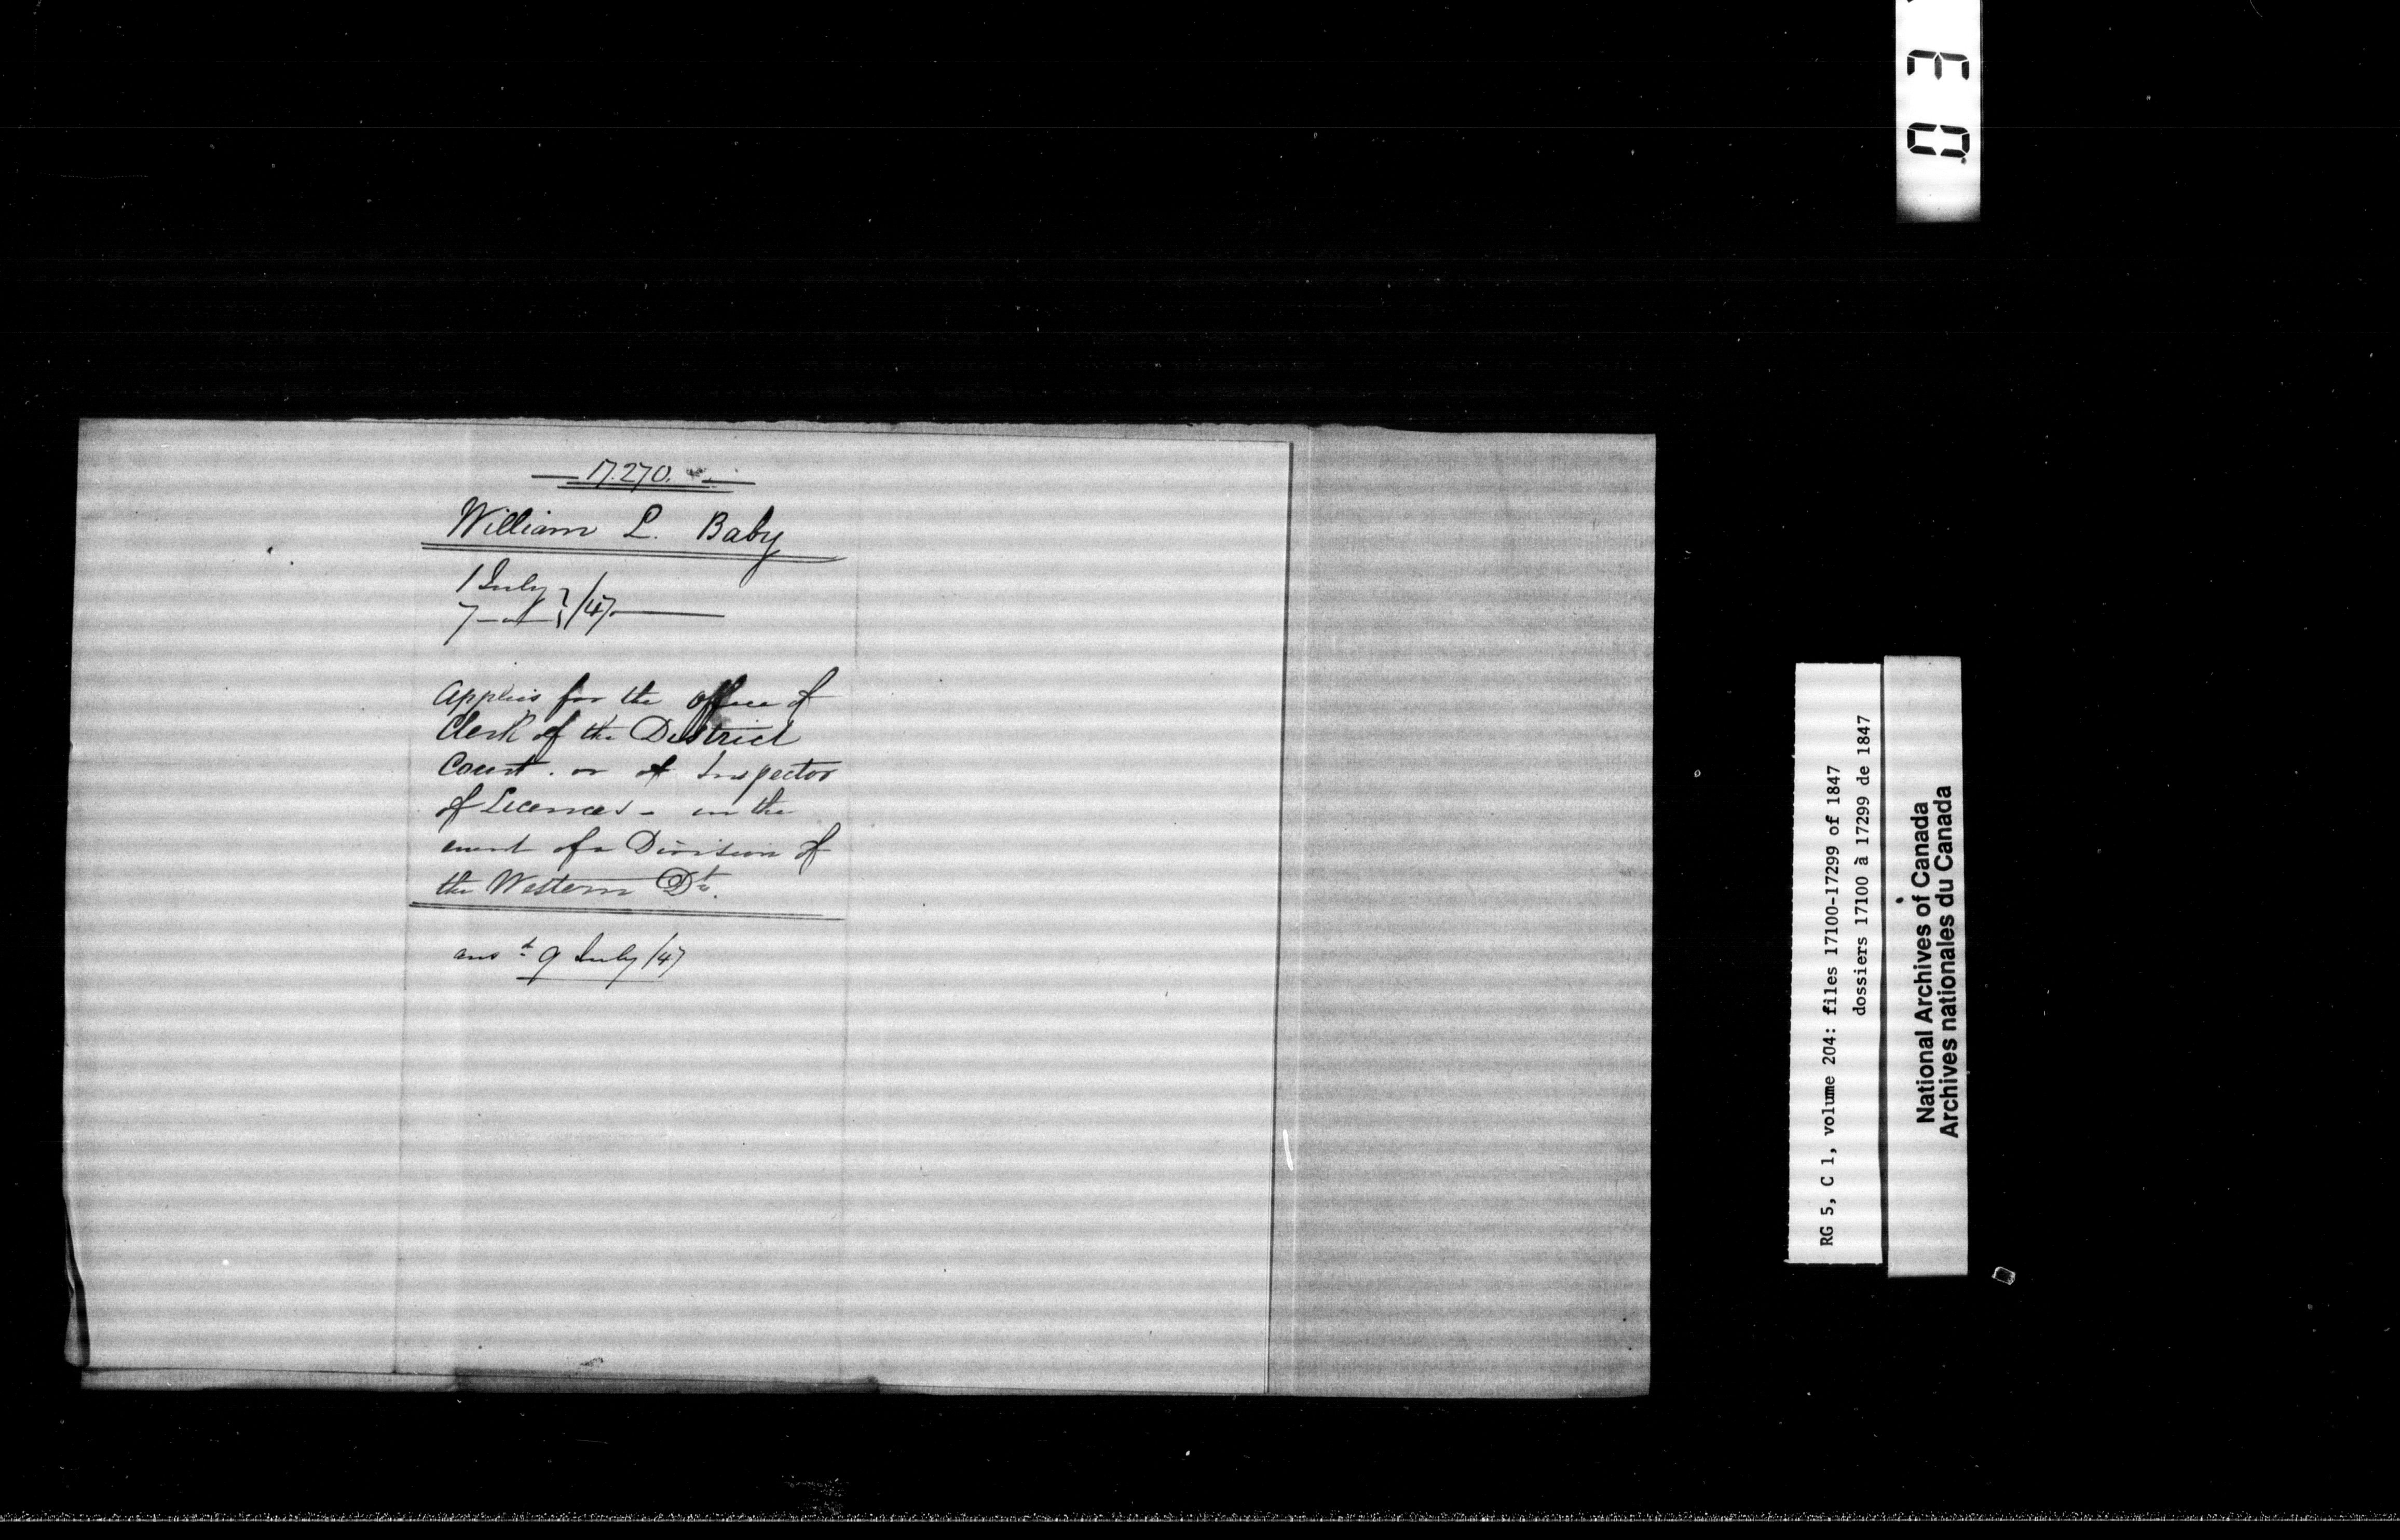 17.270.
William L. Baby
1 July
7 — d — } /47
Applies for the office of
Clerk of the District
Court. or of Inspector
of Licences - in the
event of a Division of
the Western Dt.
ansd 9 July /47
RG 5, C 1, volume 204: files 17100-17299 of 1847
dossiers 17100 à 17299 de 1847
National Archives of Canada
Archives nationales du Canada
03